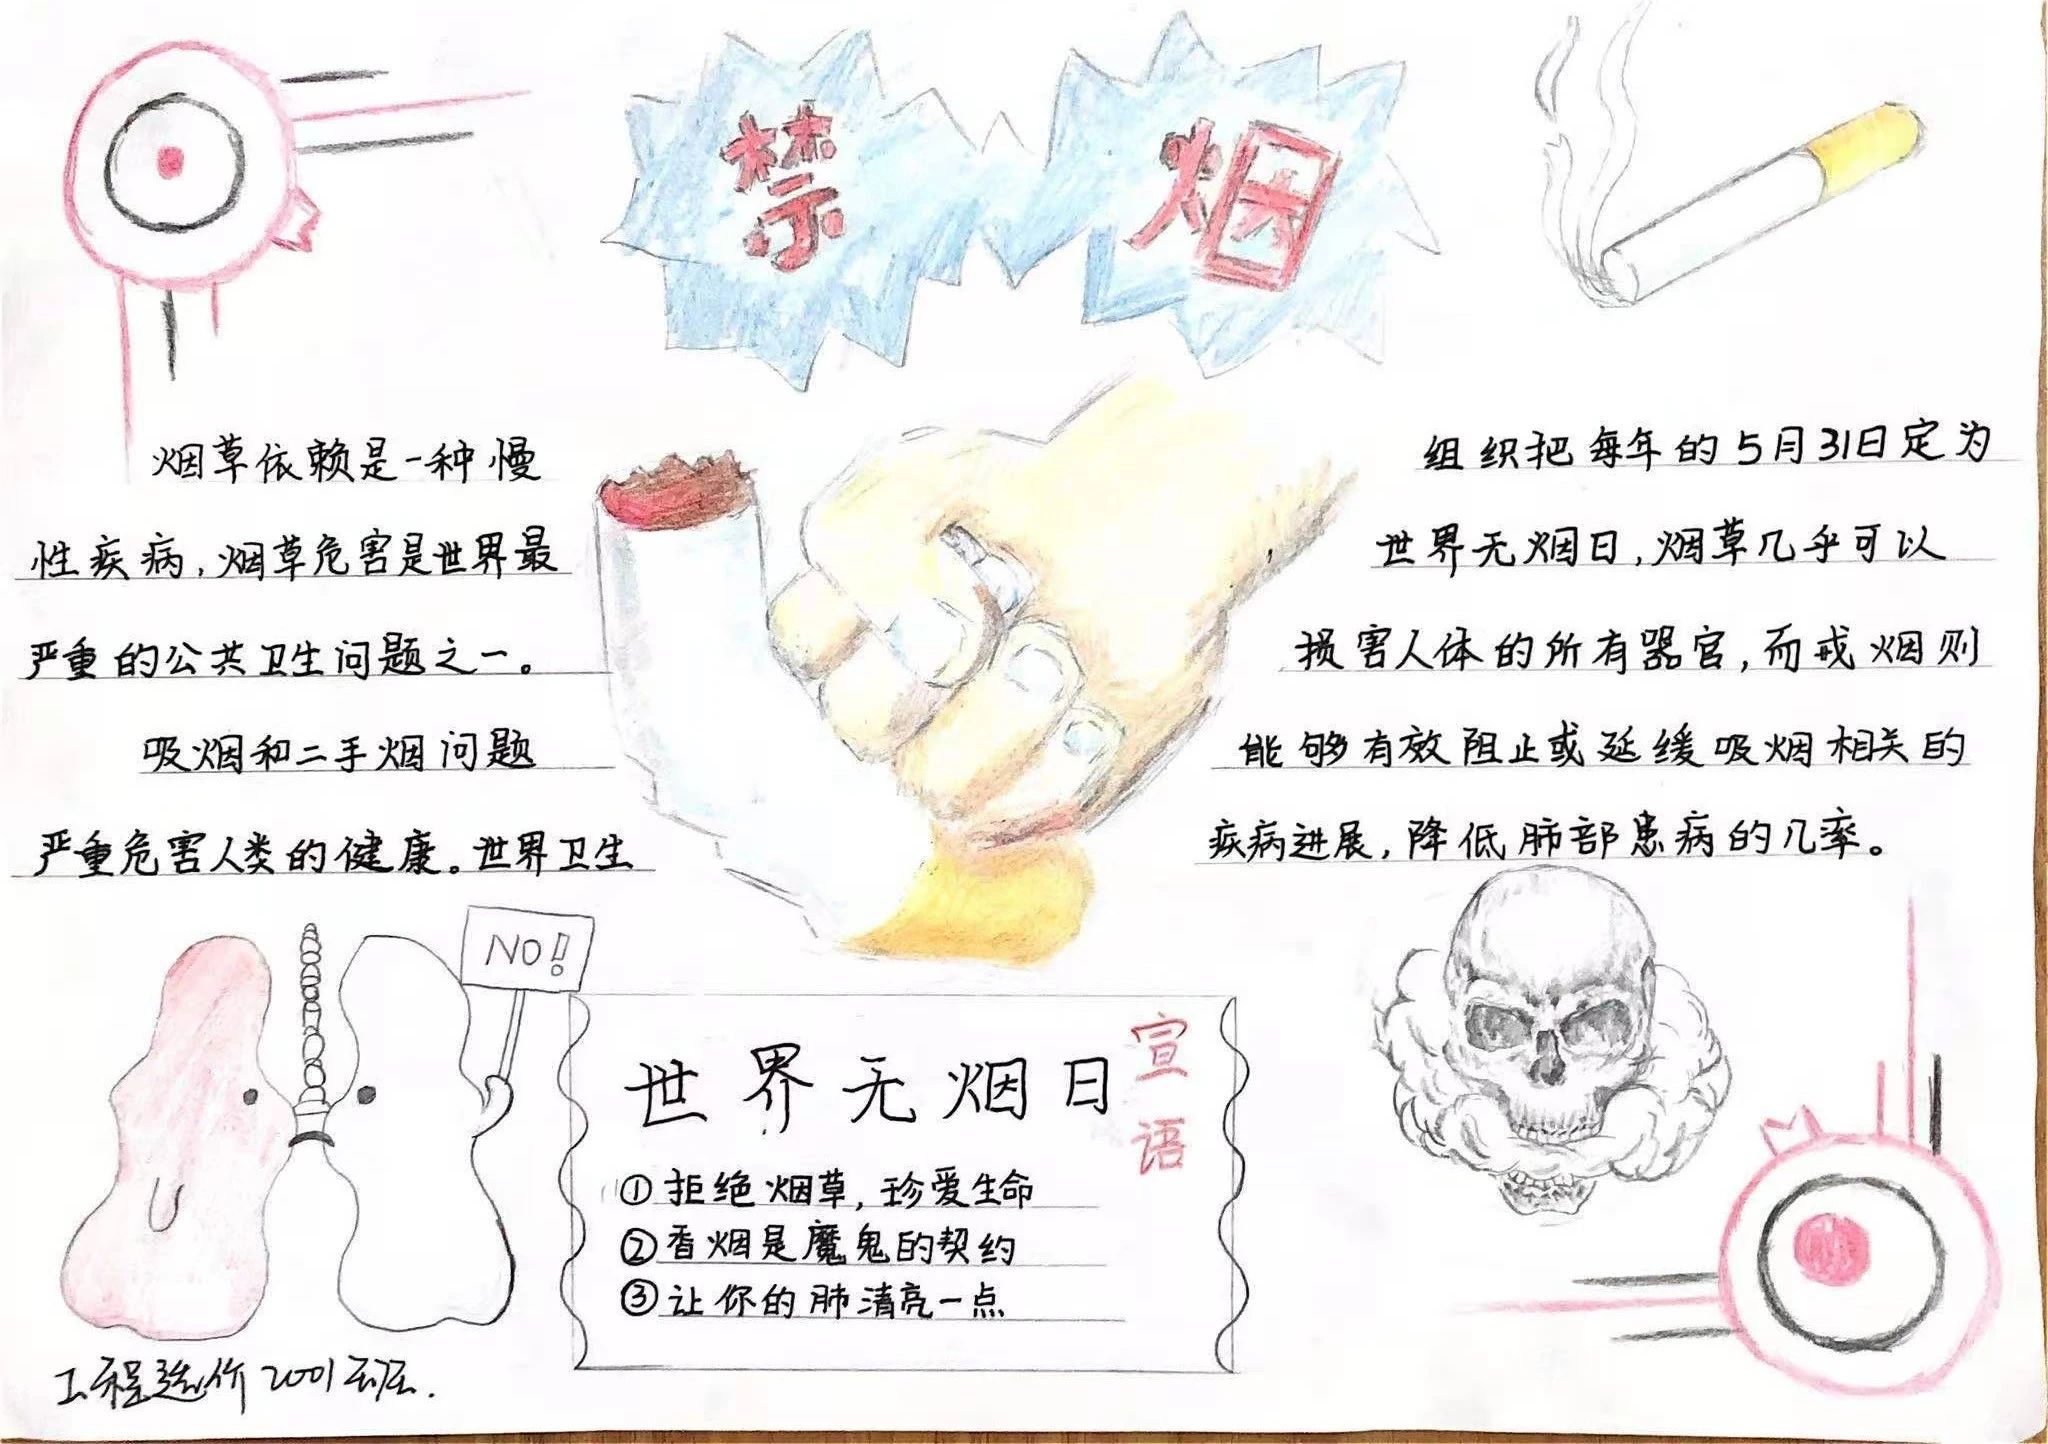 禁烟
烟草依赖是一种慢
性疾病,烟草危害是世界最
严重的公共卫生问题之一。
吸烟和二手烟问题
严重危害人类的健康。世界卫生
组织把每年的5月31日定为
世界无烟日,烟草几乎可以
损害人体的所有器官,而戒烟则
能够有效阻止或延缓吸烟相关的
疾病进展,降低肺部患病的几率。
NO!
世界无烟日
宣语
①拒绝烟草,珍爱生命
②香烟是魔鬼的契约
③让你的肺清亮一点
工程造价2001班.